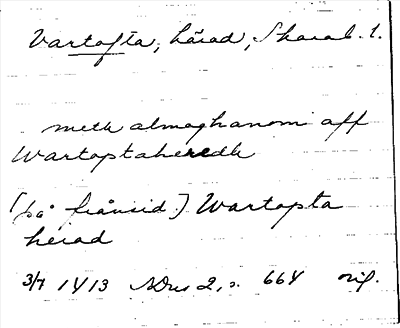 Vartofta, härad, Skarab. l.
meth almoghanom aff
Wartoptaheredh
[på frånsid.] Wartopta
herad
3/7 1413 SDns 2, s. 664 orig.